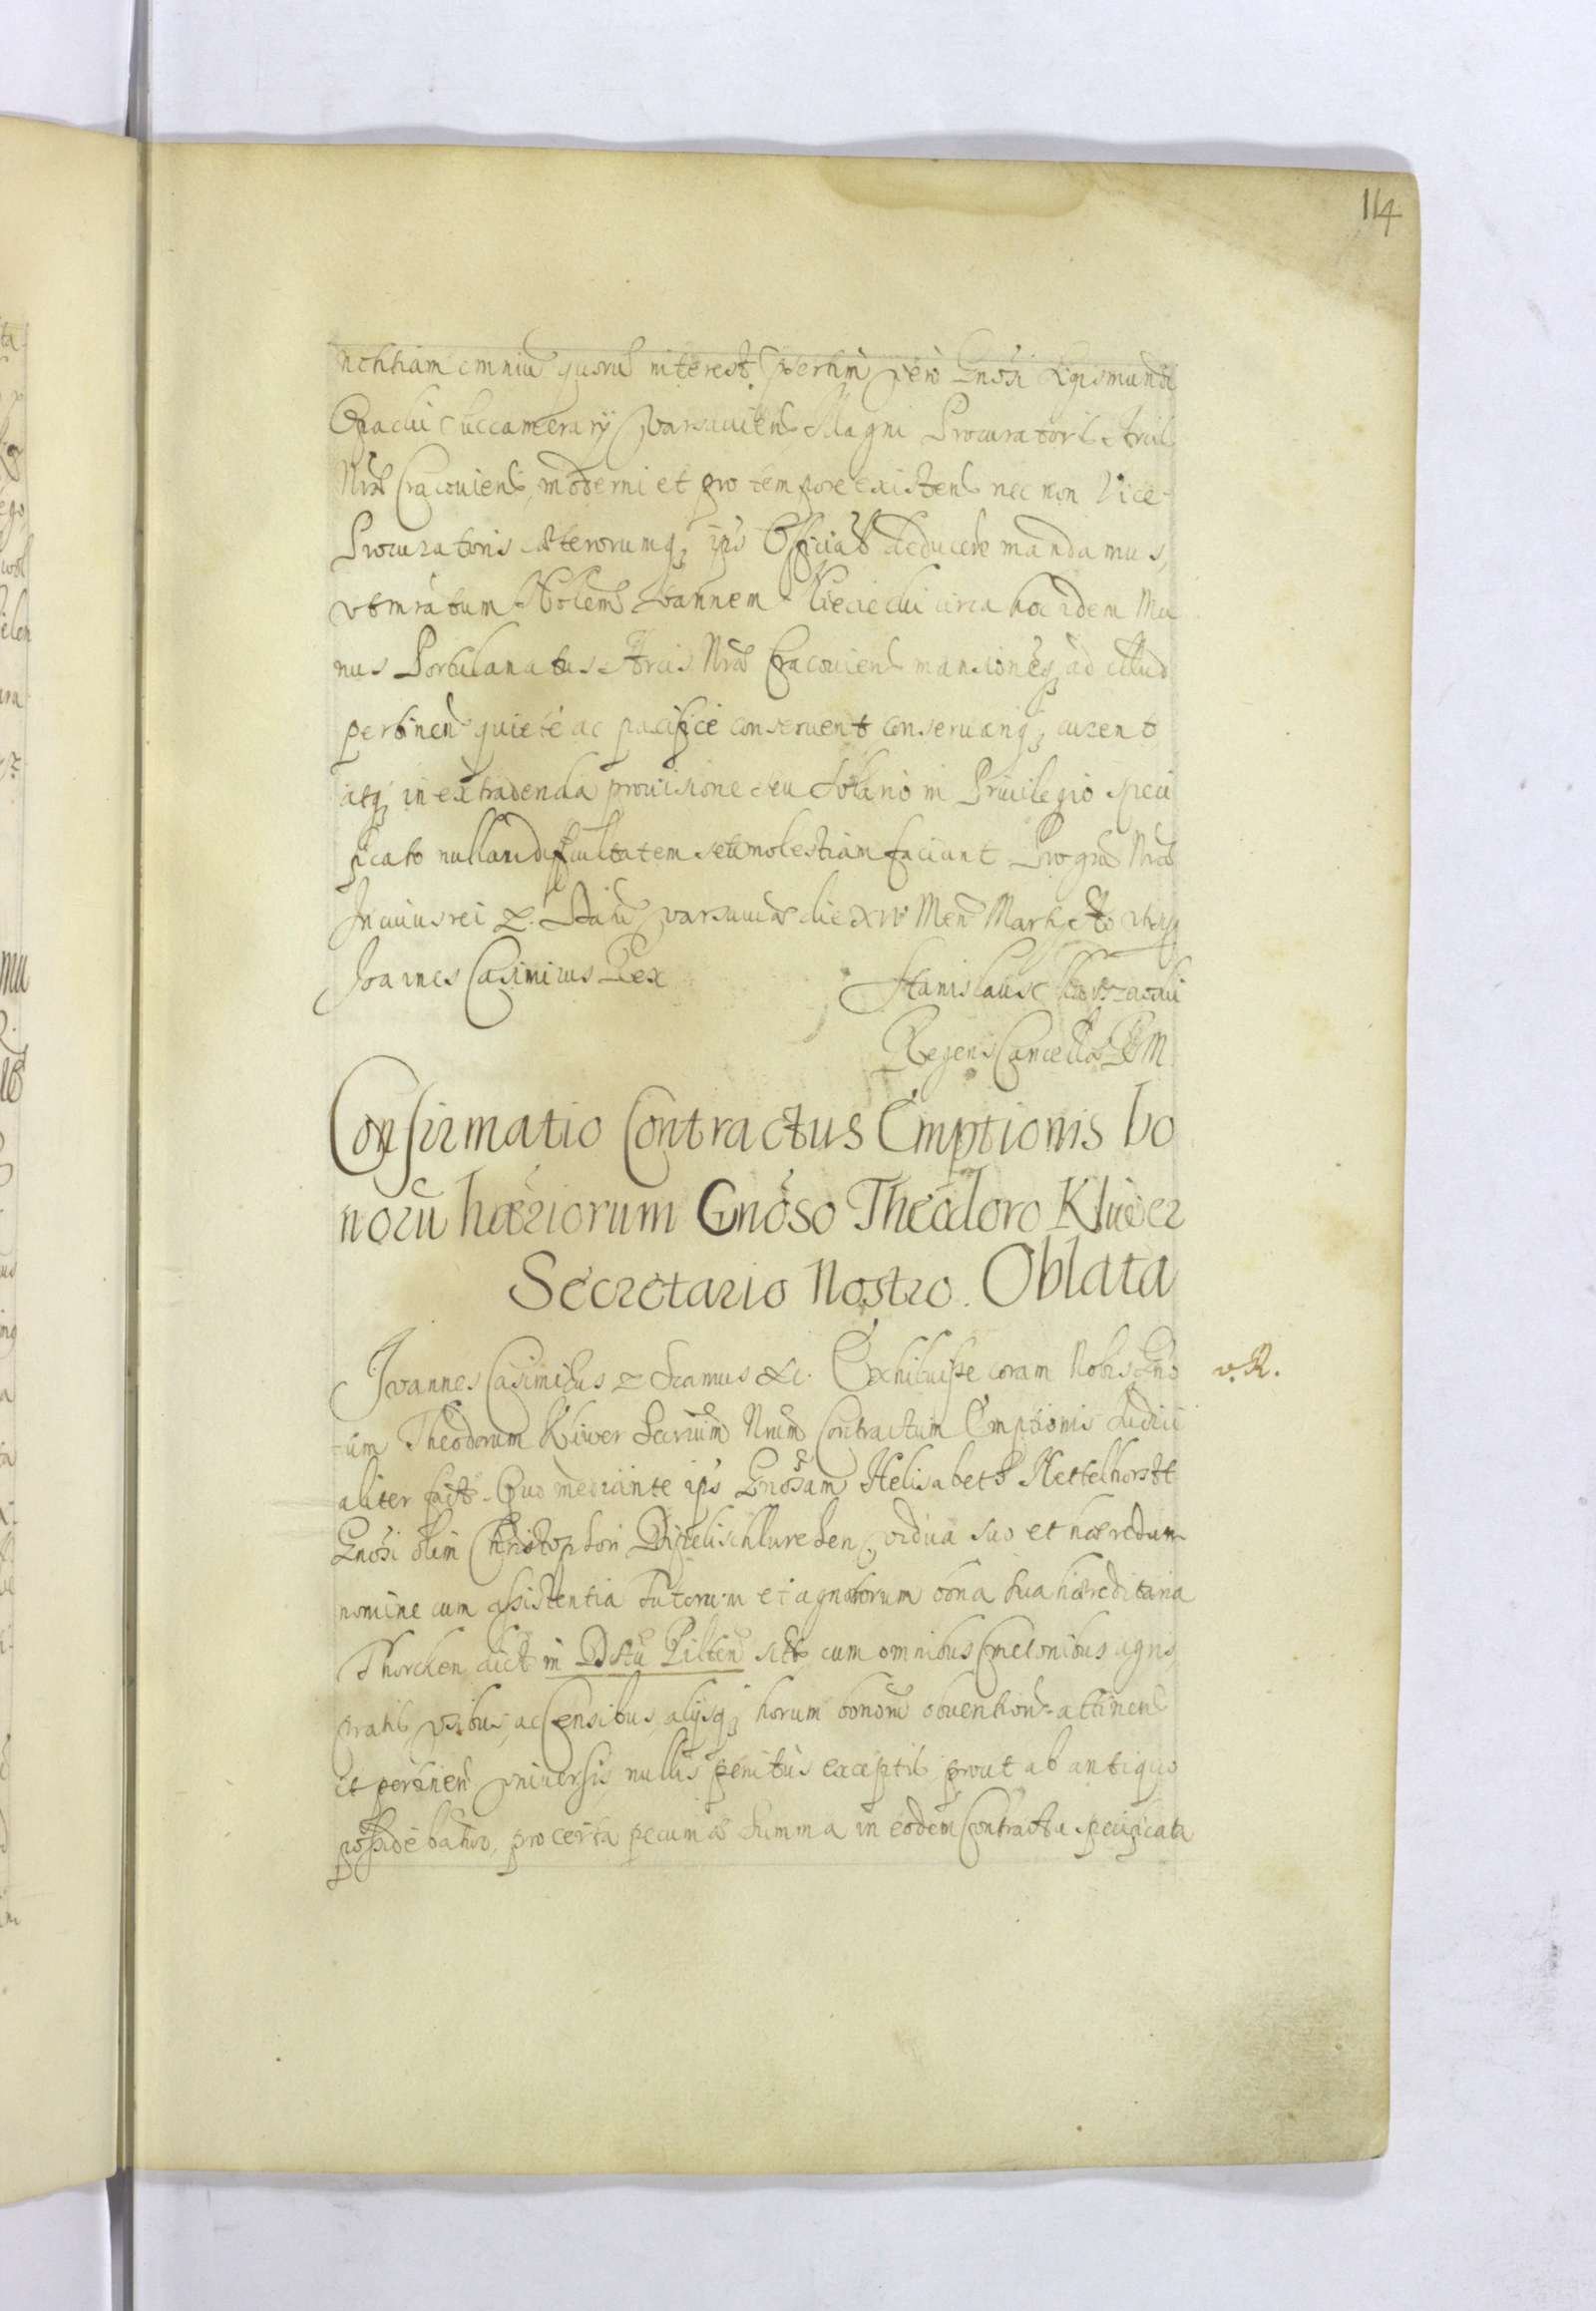 114
notitiam omniũ quorũ interest, p̃sertim vero Gnosi Sigismundi
Opacki Succamerarij Varsauien̄ Magni Procuratoris Arcis
Nrae Cracouien̄ moderni et pro tempore existen̄ nec non Vice-
Procuratoris caeterorumq; ips Officialũ deducere mandamus,
vt mratum Nobilem Ioannem circa hoc idem Mu
nus Portulanatus Arcis Nrae Cracouien̄ mansionesq; ad illud
pertinen̄ quietè ac pacificè conseruent conseruariq; curent
atq; in extradenda prouisione seu Solario in Priuilegio speci
ficato nullam difficultatem seu molestiam faciant Pro gra Nra
In cuius rei &. Datũ Varsauiae die XIV Men̄ Martij Ao vt supra
Joannes Casimirus Rex Stanislaus
Regens Cancellae R M
Confirmatio Contractus Emptionis bo
norũ haeriorum Gnoso Theodoro Kliwer
Secretario Nostro. Oblata
Joannes Casimirus & Sramus &c. Exhibuisse coram Nobis Gno v. R.
sum Theodorum Kliwer Secrium Nrum Contractum Emptionis Judici
aliter fact. Quo mediante ips Gnosam Helisabeth Nettelhorstt
Gnosi olim Christophori vidua suo et haeredum
nomine cum assistentia Tutorum et agnatorum bona sua haereditaria
Thorcken dict in Dstu Pilten̄ sita cum omnibus Cmetonibus agris,
pratis, vsibus, ac Censibus, alijsq; horum bonorũ obuention̄ attinen̄
et pertinen̄ vniuersis, nullis penitus exceptis, prout ab antiquo
possidebatur, pro certa pecuniae summa in eodem Contractu specificata